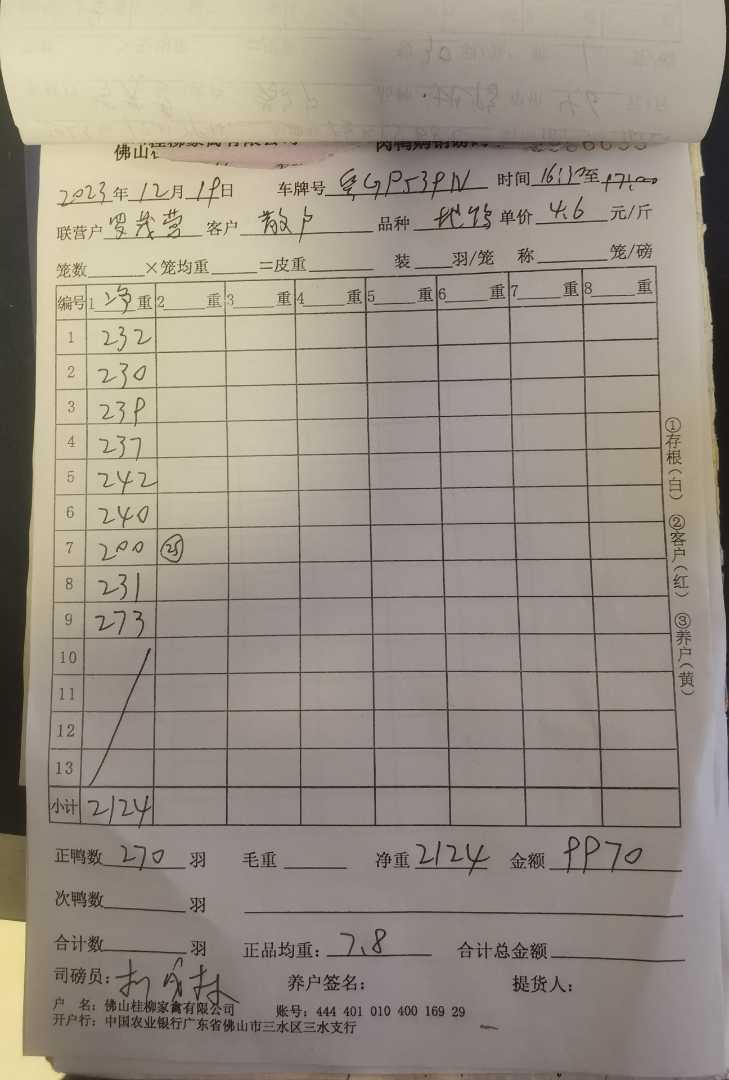 佛山桂柳家禽有限公司
2023年12月19日 车牌号 粤GP539N 时间16:30至17:00
联营户 罗茂营 客户 散户 品种 单价 4.6 元/斤
笼数 ×笼均重 =皮重 装 羽/笼 称 笼/磅
编号 1 净 重 2 重 3 重 4 重 5 重 6 重 7 重 8 重
1 232
2 230
3 239
4 237
5 242
6 240
7 200 25
8 231
9 273
10
11
12
13
小计 2124
正鸭数 270 羽 毛重 净重 2124 金额 9970
次鸭数 羽
合计数 羽 正品均重: 7.8 合计总金额
司磅员: 养户签名: 提货人:
户 名: 佛山桂柳家禽有限公司 账号: 444 401 010 400 169 29
开户行: 中国农业银行广东省佛山市三水区三水支行
①存根(白) ②客户(红) ③养户(黄)